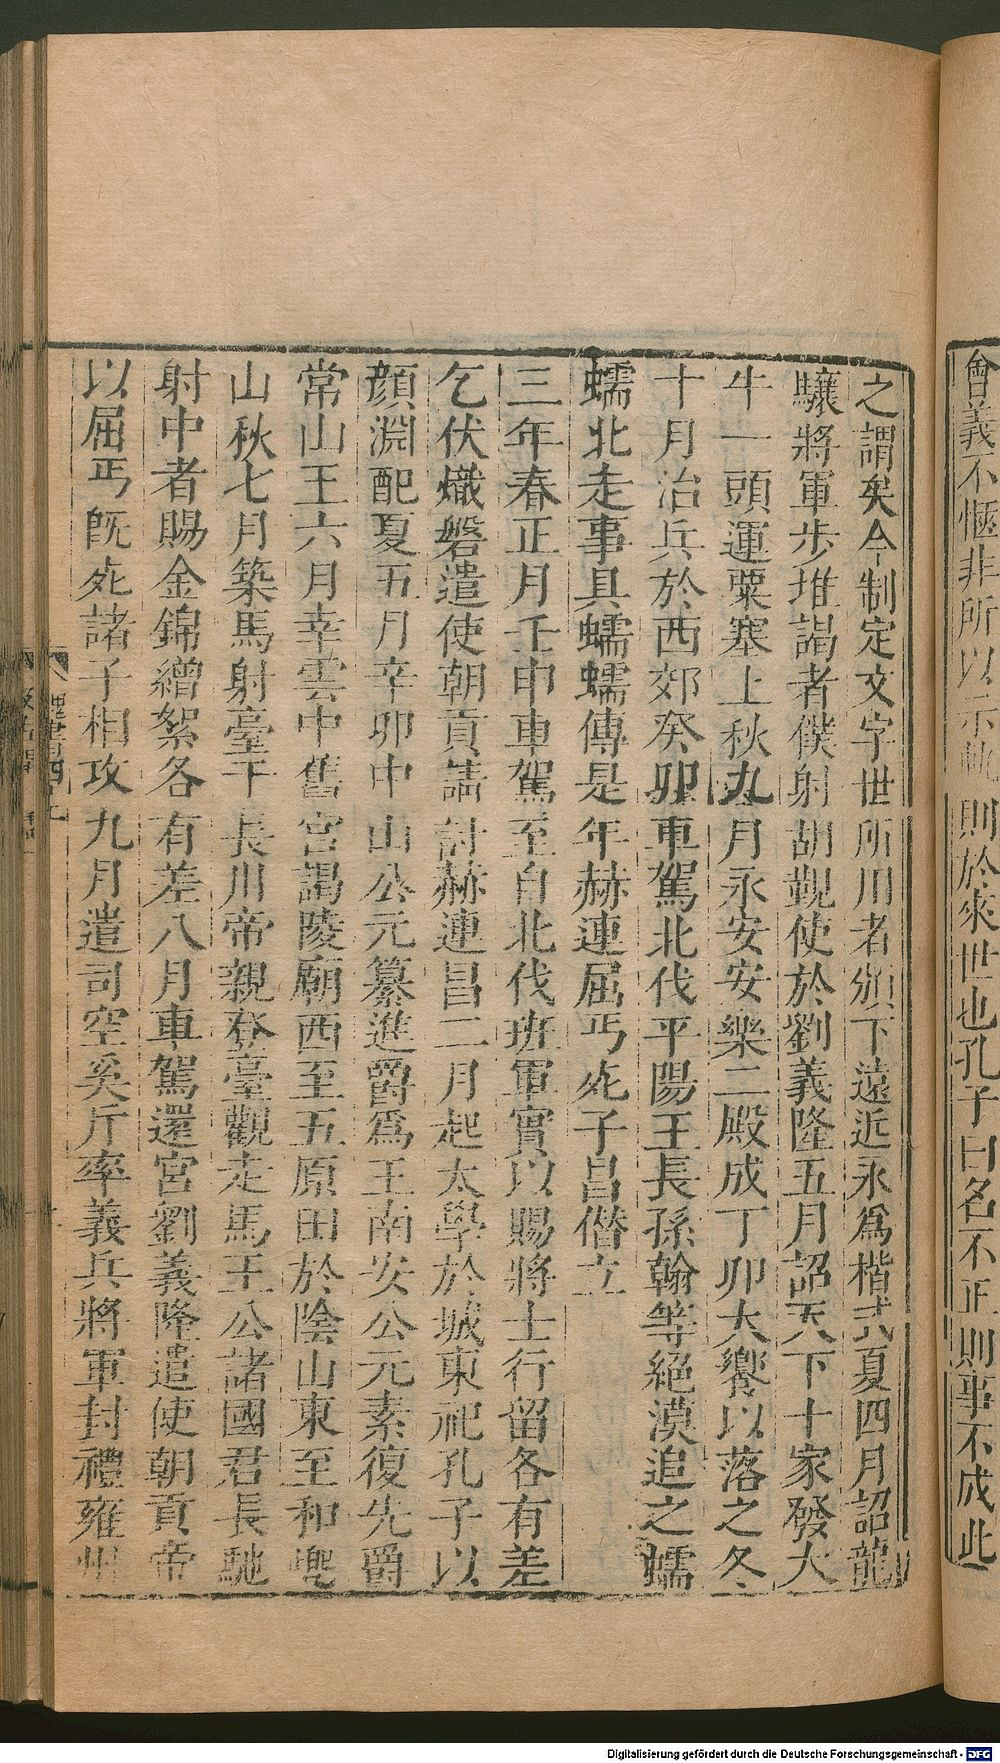 會義不愜非所以示軌則於來世也孔子曰名不正則事不成此
之謂矣今制定文字世所用者頒下遠近永爲楷式夏四月詔龍
驤將軍步堆謁者僕射胡覲使於劉義隆五月詔天下十家發大
牛一頭運粟塞上秋九月永安安樂二殿成丁卯大饗以落之冬
十月治兵於西郊癸卯車駕北伐平陽王長孫翰等絕漠追之蠕
蠕北走事具蠕蠕傳是年赫連屈丐死子昌僭立
三年春正月壬申車駕至自北伐班軍實以賜將士行留各有差
乞伏熾磐遣使朝貢請討赫連昌二月起太學於城東祀孔子以
顏淵配夏五月辛卯中山公元纂進爵爲王南安公元素復先爵
常山王六月幸雲中舊宮謁陵廟西至五原田於陰山東至和兜
山秋七月築馬射臺于長川帝親登臺觀走馬王公諸國君長馳
射中者賜金錦繒絮各有差八月車駕還宮劉義隆遣使朝貢帝
以屈丐既死諸子相攻九月遣司空奚斤率義兵將軍封禮雍州
Digitalisierung gefördert durch die Deutsche Forschungsgemeinschaft - DFG